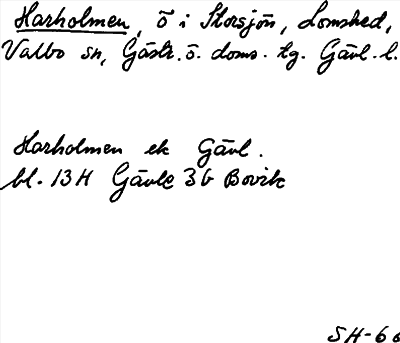 Harholmen, ö i Storsjön, Lomshed,
Valbo sn, Gästr. ö. doms. tg. Gävl. l.
Harholmen ek Gävl.
bl. 13H Gävle 3b Bovik
SH-66